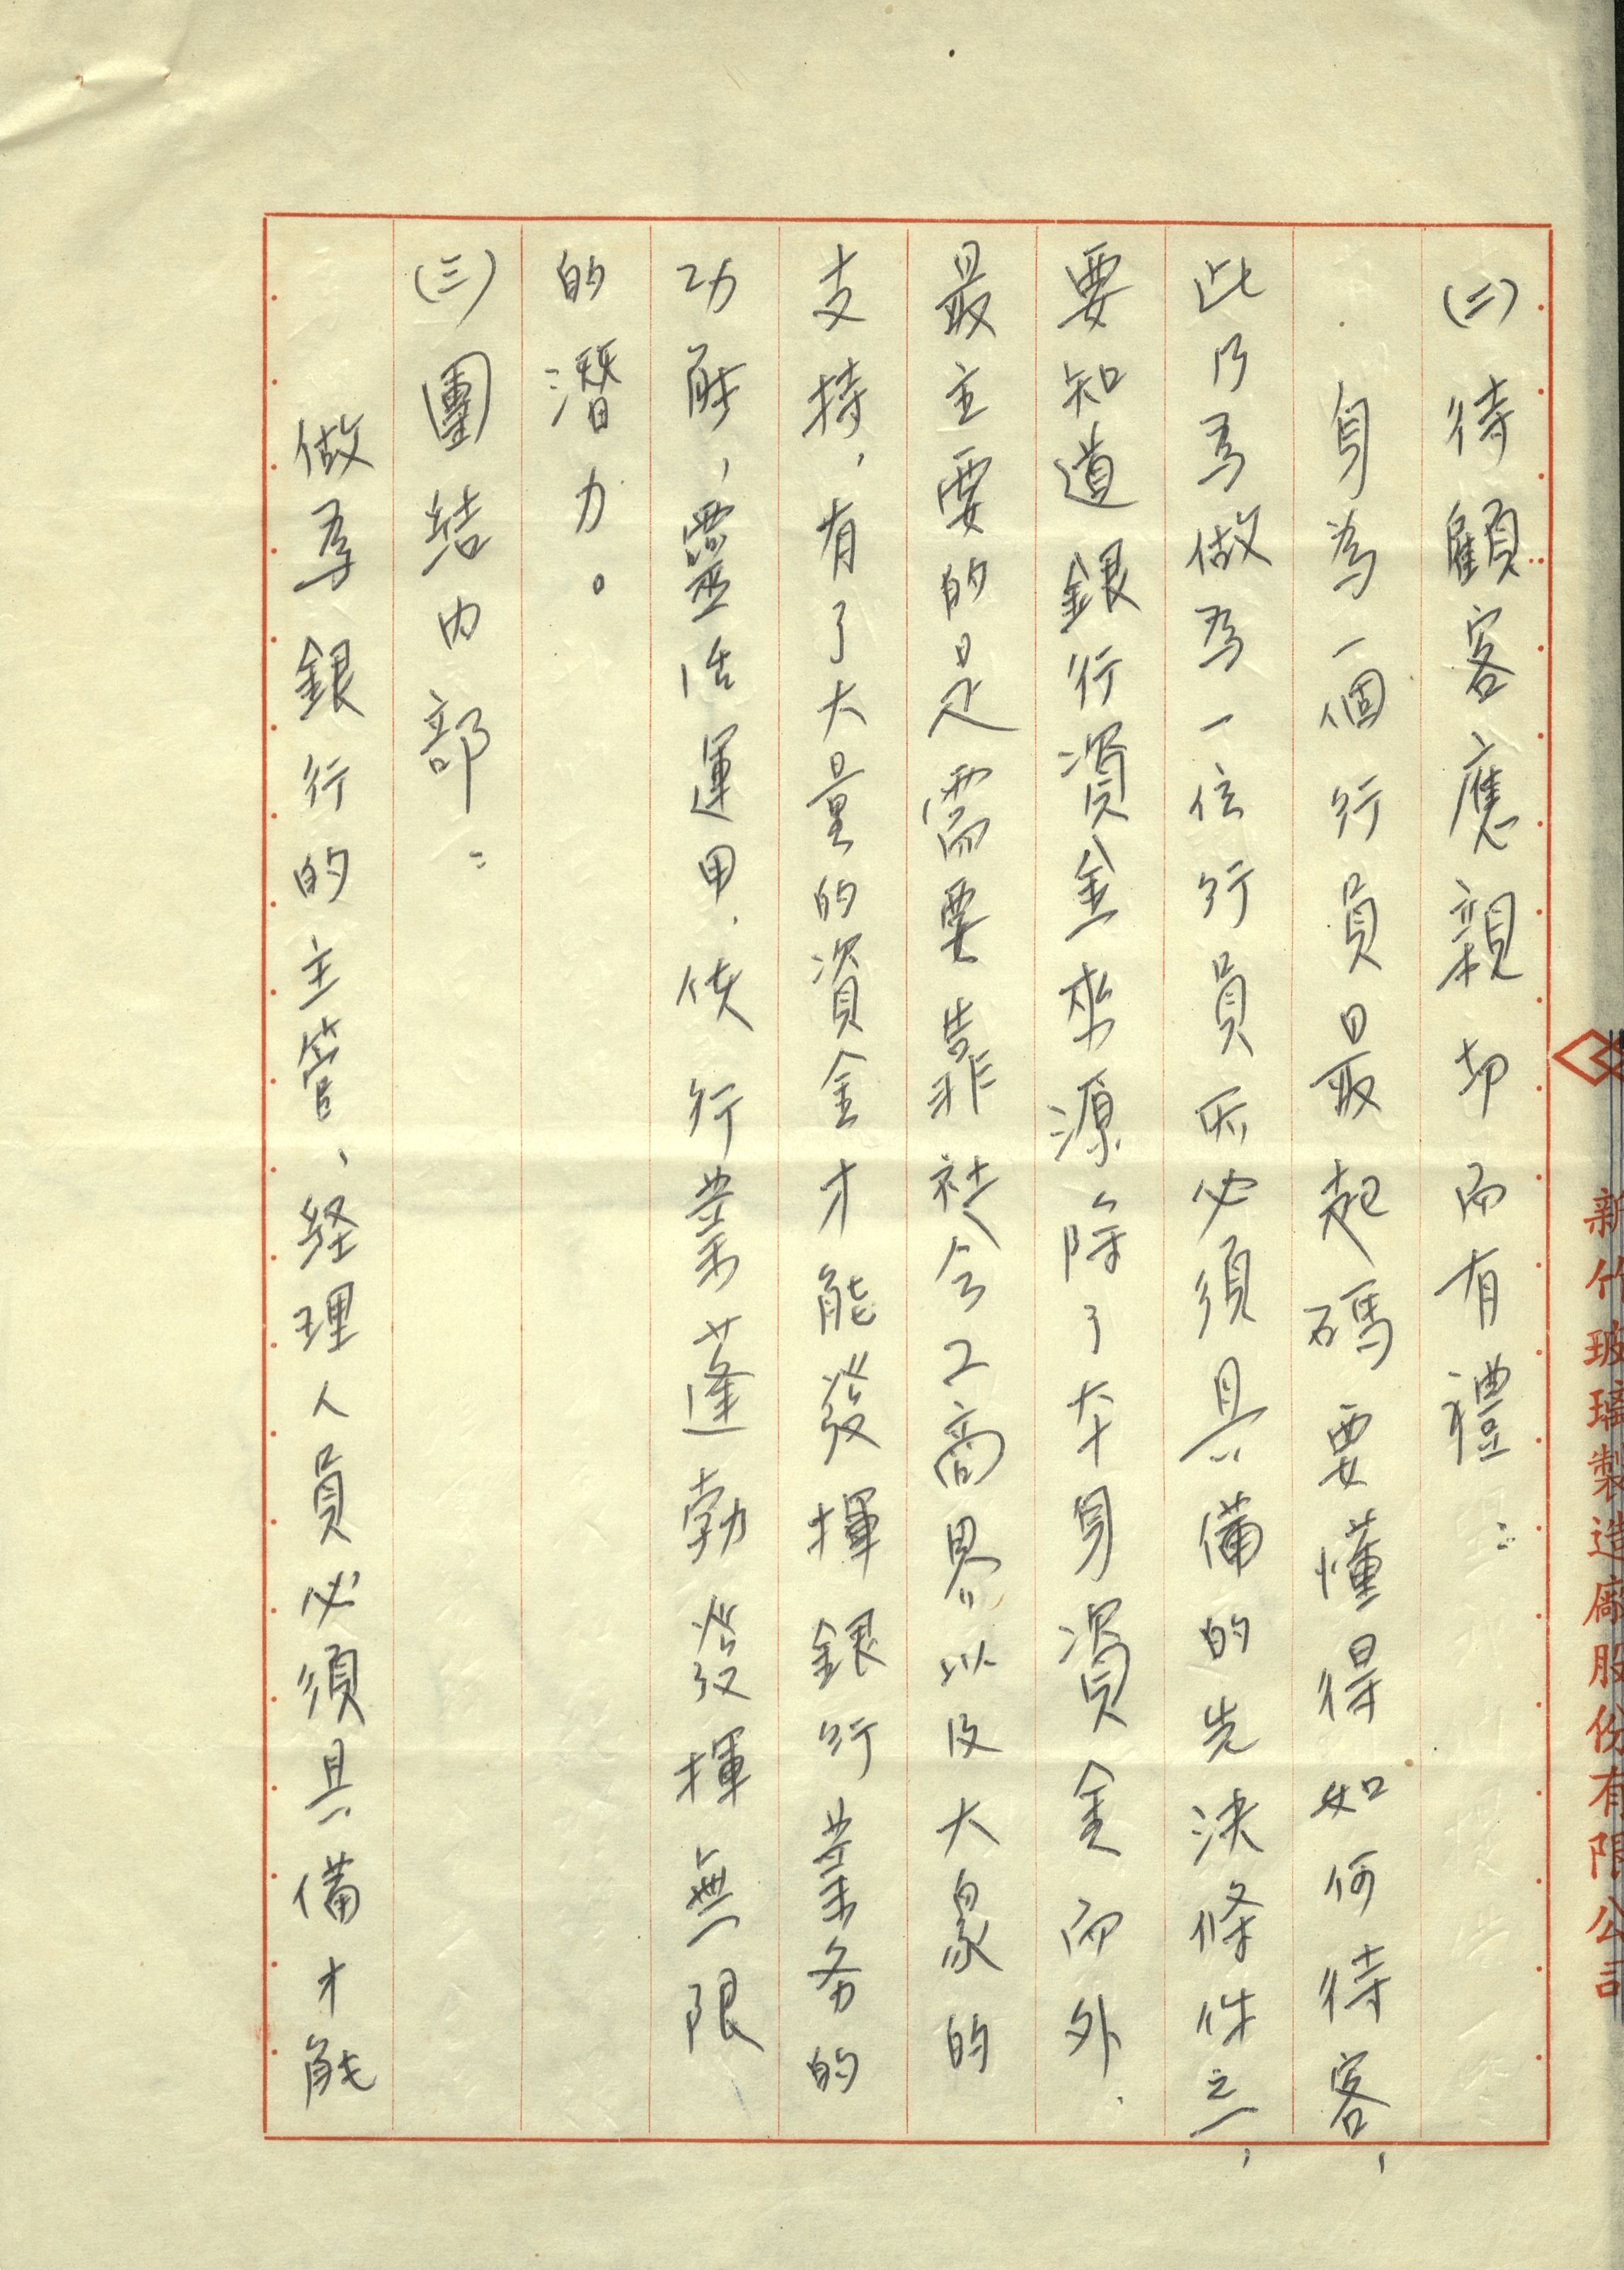 新竹玻璃製造廠股份有限公司
(二)待顧客應親切而有禮：
身為一個行員最起碼要懂得如何待客，
此乃為做為一位行員所必須具備的先決條件之一，
要知道銀行資金來源除了本身資金而外，
最主要的是需要靠社會工商界以及大眾的
支持，有了大量的資金才能發揮銀行業务的
功能，靈活運用，使行業蓬勃發揮無限
的潛力。
(三)團結內部：
做為銀行的主管、経理人員必須具備才能